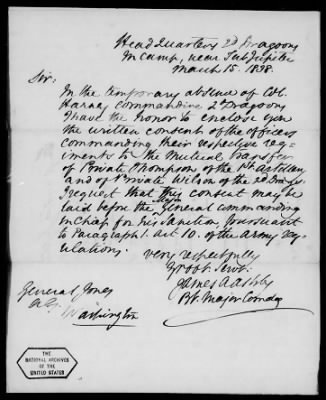 Head Quarters 2d Dragoons
In Camp, near Fort Jupiter
March 15. 1838.
Sir:
In the temporary absence of Col.
Harney Commanding 2d Dragoons
I have the honor to enclose you
the written consent of the officers
commanding their respective regi-
ments to the mutual transfer
of Private Thompson of the 1st Artillery
and of Private Wilson of the 2d Drag.s
I request that this consent may be
laid before the Major General commanding
in Chief for his sanction, pursuant
to Paragraph 1. Art 10. of the Army reg-
ulations.
Very respectfully
Yr obt. Servt.
James A Ashby
Bt. Major Comdg
General Jones
A.G.
Washington
THE
NATIONAL ARCHIVES
OF THE
UNITED STATES